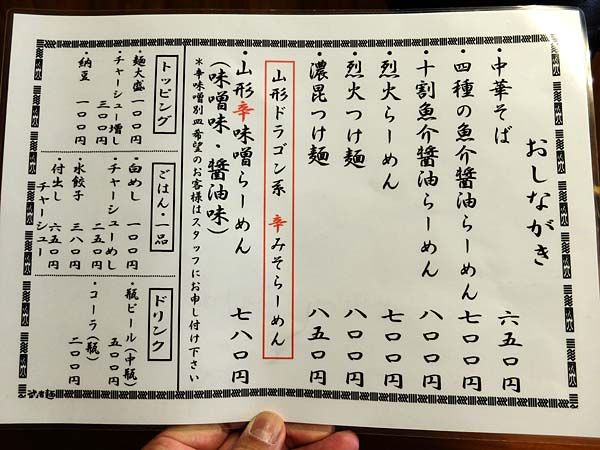 おしながき
・中華そば 六五〇円
・四種の魚介醬油らーめん 七〇〇円
・十割魚介醬油らーめん 八〇〇円
・烈火らーめん 七〇〇円
・烈火つけ麺 八〇〇円
・濃昆つけ麺 八五〇円
山形ドラゴン系 辛みそらーめん
・山形辛味噌らーめん 七八〇円
（味噌味・醬油味）
＊辛味噌別皿希望のお客様はスタッフにお申し付け下さい
トッピング
・麺大盛 一〇〇円
・チャーシュー増し 三〇〇円
・納豆 一〇〇円
ごはん・一品
・白めし 一〇〇円
・チャーシューめし 二五〇円
・水餃子 三八〇円
・付出しチャーシュー 六五〇円
ドリンク
・瓶ビール（中瓶） 五〇〇円
・コーラ（瓶） 二〇〇円